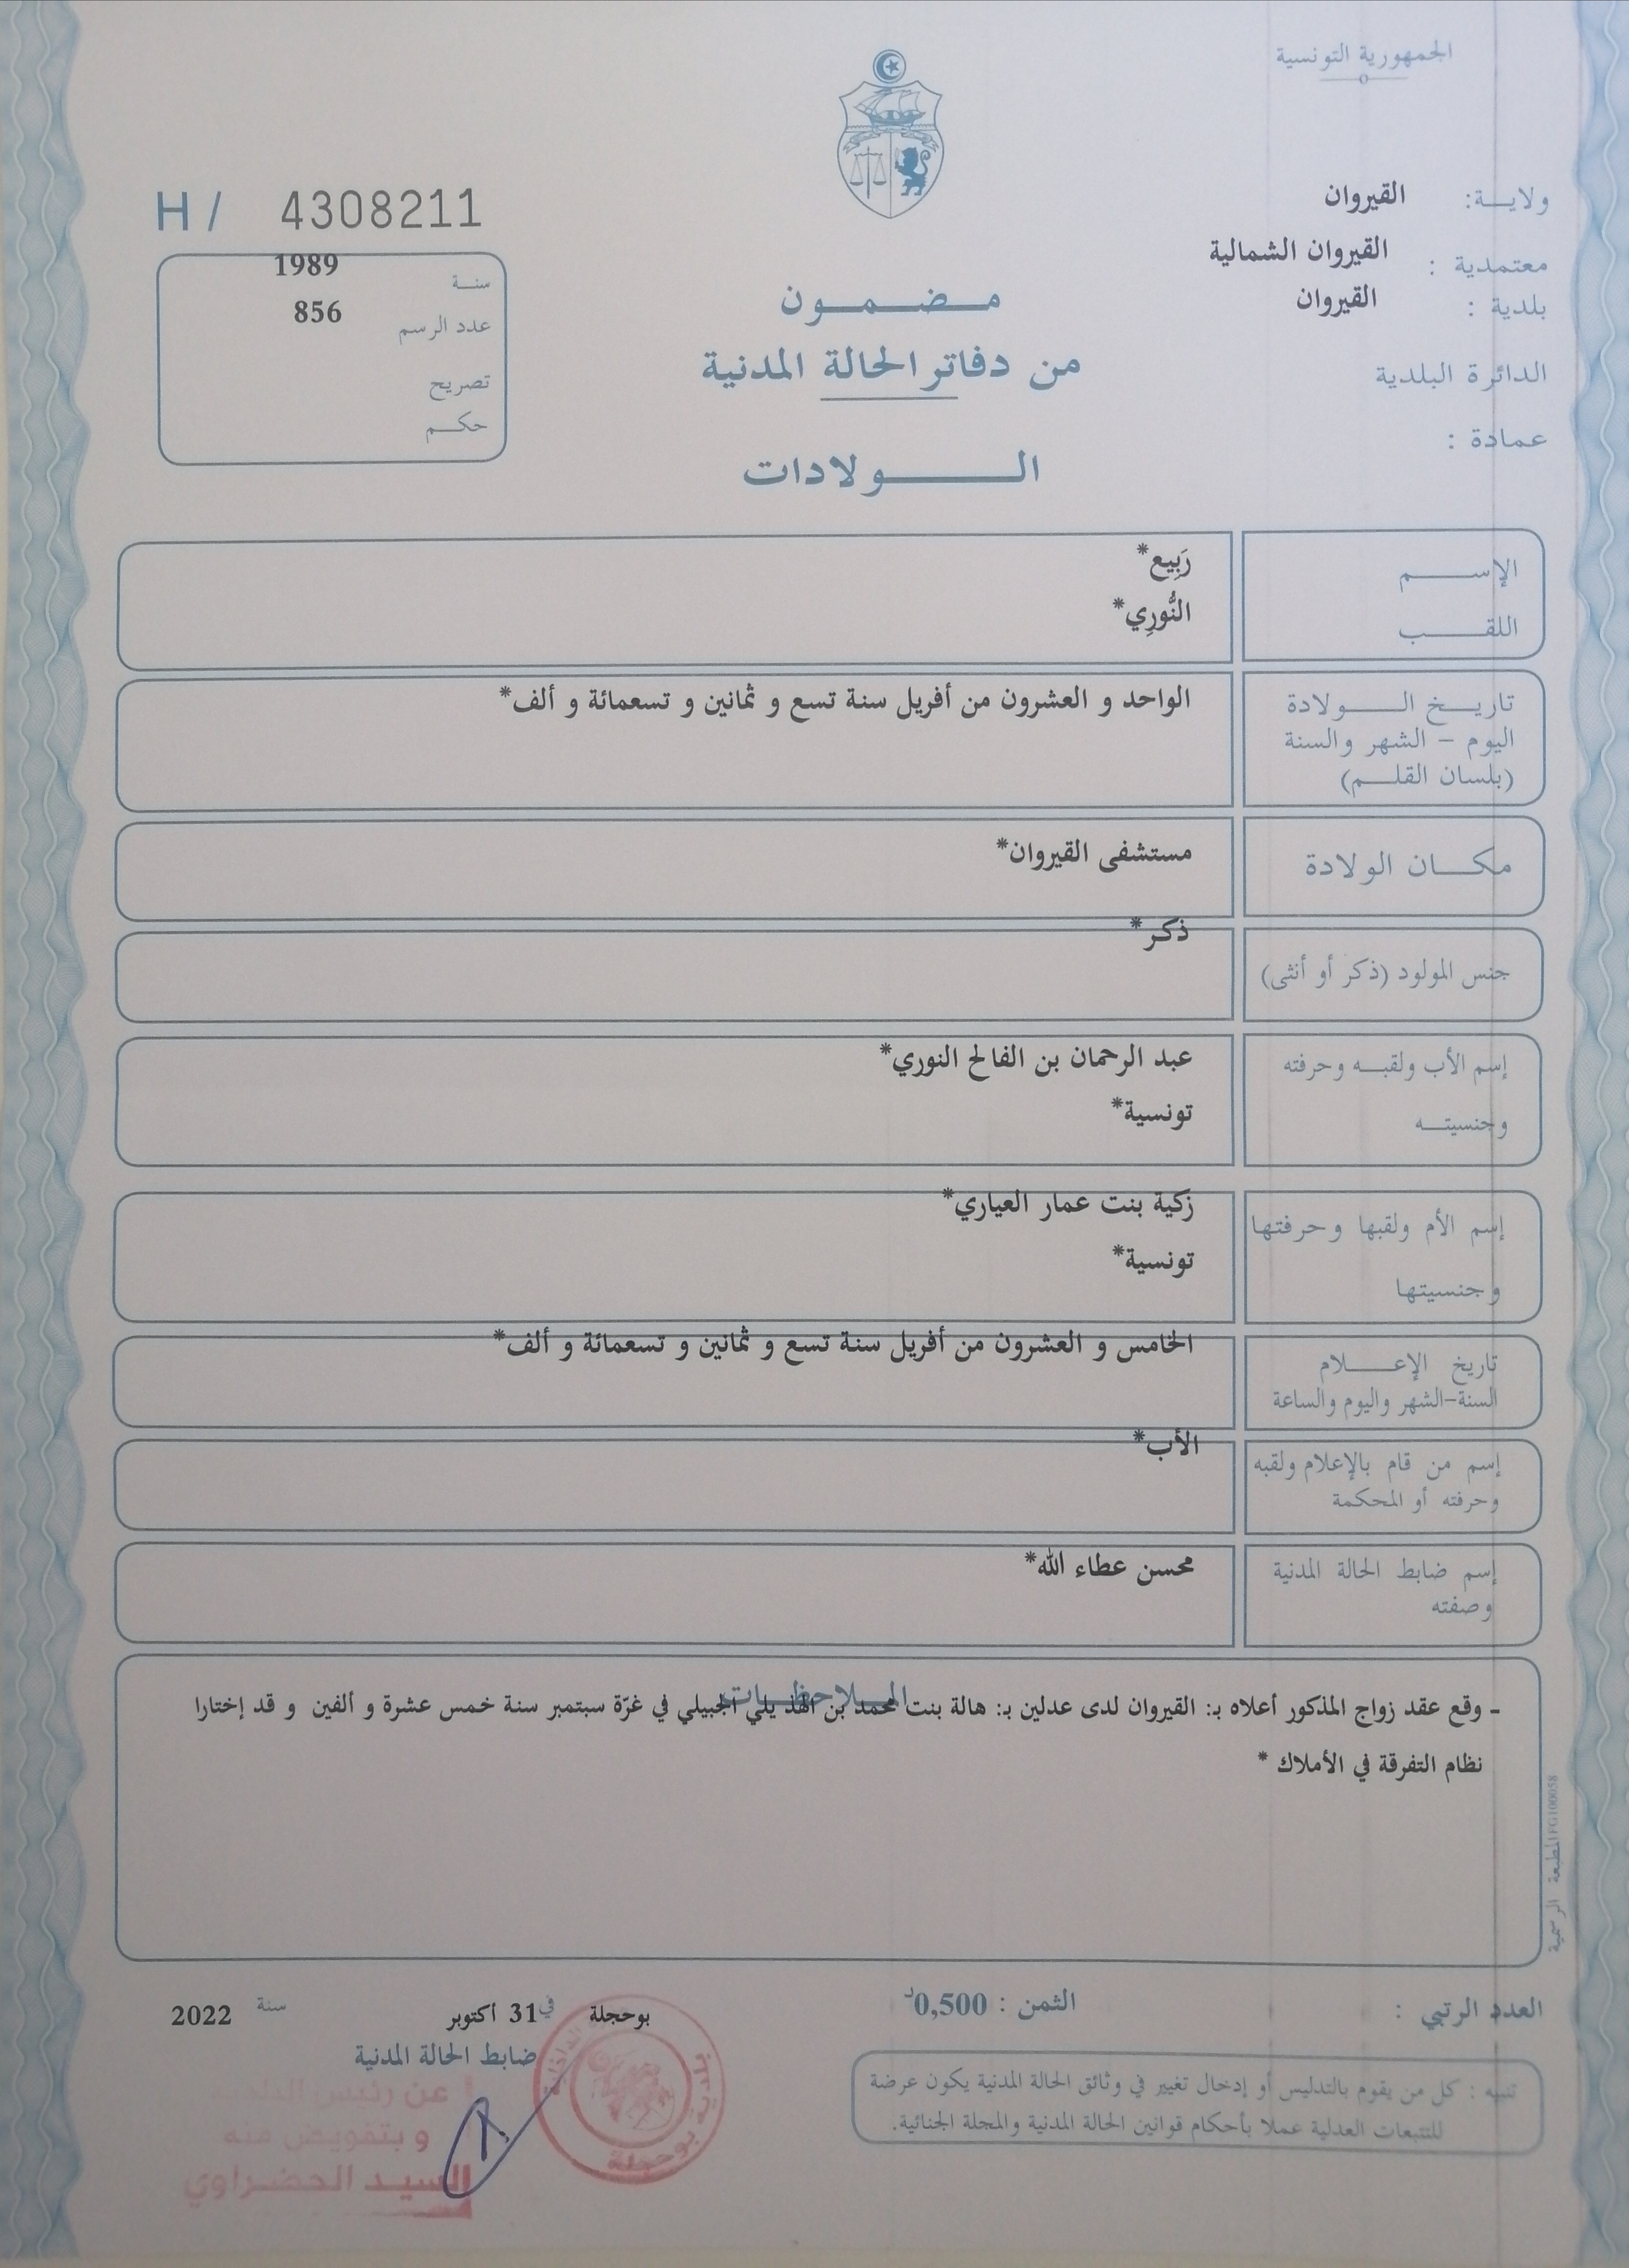 الجمهورية التونسية
ولايـــة: القيروان
معتمدية : القيروان الشمالية
بلدية : القيروان
الدائرة البلدية
عمادة :
H / 4308211
سنــة 1989
عدد الرسم 856
تصريح
حكــم
مــضــمــون
من دفاتر الحالة المدنية
الــــــولادات
الإســـــم رَبِيع*
اللقـــــب النُّورِي*
تاريــخ الـــــولادة الواحد و العشرون من أفريل سنة تسع و ثمانين و تسعمائة و ألف*
اليوم – الشهر والسنة
(بلسان القلــم)
مكـــان الولادة مستشفى القيروان*
جنس المولود (ذكر أو أنثى) ذكر*
إسم الأب ولقبــه وحرفته عبد الرحمان بن الفالح النوري*
وجنسيتــه تونسية*
إسم الأم ولقبها وحرفتها زكية بنت عمار العياري*
وجنسيتها تونسية*
تاريخ الإعــــلام الخامس و العشرون من أفريل سنة تسع و ثمانين و تسعمائة و ألف*
السنة–الشهر واليوم والساعة
إسم من قام بالإعلام ولقبه الأب*
وحرفته أو المحكمة
إسم ضابط الحالة المدنية محسن عطاء الله*
وصفته
المــلاحظــات
- وقع عقد زواج المذكور أعلاه بـ: القيروان لدى عدلين بـ: هالة بنت محمد بن الهذيلي الجبيلي في غرّة سبتمبر سنة خمس عشرة و ألفين و قد إختارا
نظام التفرقة في الأملاك *
المطبعة الرسمية IFG100058
العدد الرتبي :
الثمن : 0,500د
بوحجلة في 31 أكتوبر سنة 2022
ضابط الحالة المدنية
عن رئيس
و بتفويض منه
السيد الحضراوي
بلدية بوحجلة
تنبيه : كل من يقوم بالتدليس أو إدخال تغيير في وثائق الحالة المدنية يكون عرضة
للتتبعات العدلية عملا بأحكام قوانين الحالة المدنية والمجلة الجنائية.